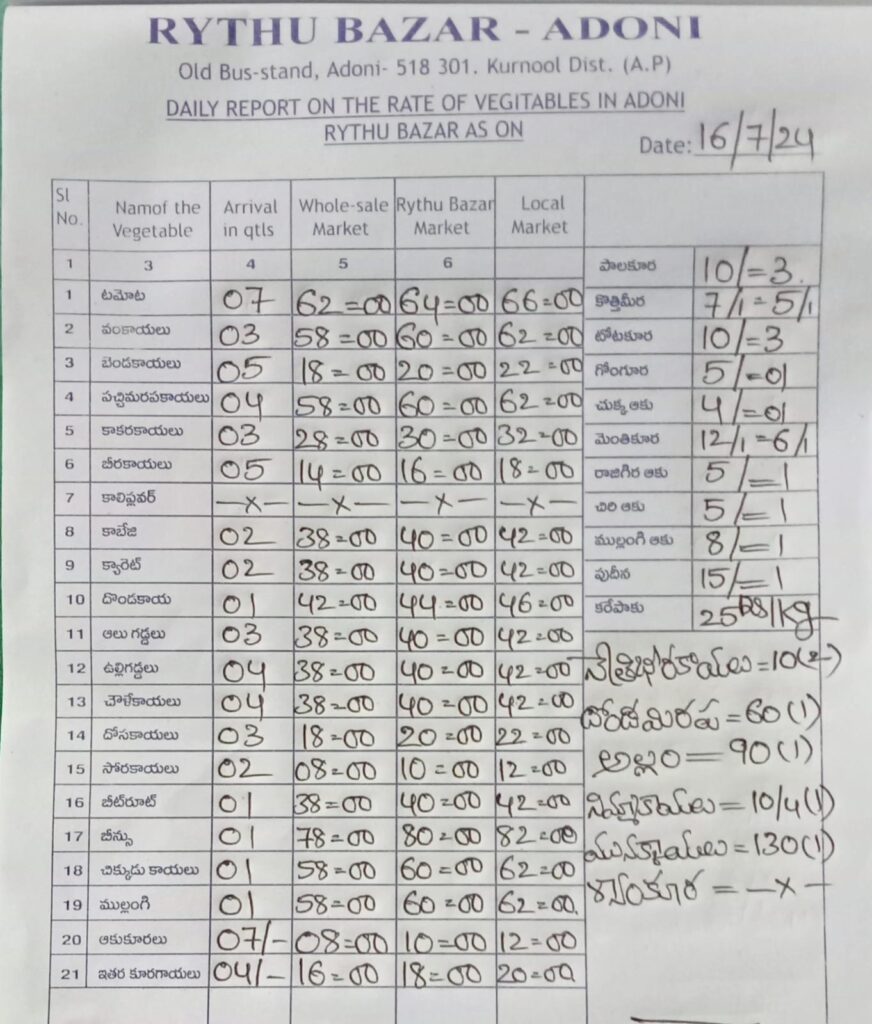 RYTHU BAZAR - ADONI
Old Bus-stand, Adoni- 518 301. Kurnool Dist. (A.P)
DAILY REPORT ON THE RATE OF VEGITABLES IN ADONI
RYTHU BAZAR AS ON
Date: 16/7/24
Sl No. Namof the Vegetable Arrival in qtls Whole-sale Market Rythu Bazar Market Local Market
1 3 4 5 6
1 టమోట 07 62=00 64=00 66=00
2 వంకాయలు 03 58=00 60=00 62=00
3 బెండకాయలు 05 18=00 20=00 22=00
4 పచ్చిమిరపకాయలు 04 58=00 60=00 62=00
5 కాకరకాయలు 03 28=00 30=00 32=00
6 బీరకాయలు 05 14=00 16=00 18=00
7 కాలిఫ్లవర్ —x— —x— —x— —x—
8 కాబేజి 02 38=00 40=00 42=00
9 క్యారెట్ 02 38=00 40=00 42=00
10 దొండకాయ 01 42=00 44=00 46=00
11 ఆలు గడ్డలు 03 38=00 40=00 42=00
12 ఉల్లిగడ్డలు 04 38=00 40=00 42=00
13 చౌళేకాయలు 04 38=00 40=00 42=00
14 దోసకాయలు 03 18=00 20=00 22=00
15 సోరకాయలు 02 08=00 10=00 12=00
16 బీట్‌రూట్ 01 38=00 40=00 42=00
17 బీన్సు 01 78=00 80=00 82=00
18 చిక్కుడు కాయలు 01 58=00 60=00 62=00
19 ముల్లంగి 01 58=00 60=00 62=00
20 ఆకుకూరలు 07/- 08=00 10=00 12=00
21 ఇతర కూరగాయలు 04/- 16=00 18=00 20=00
పాలకూర 10/=3
కొత్తిమీర 7/1=5/1
తోటకూర 10/=3
గోంగూర 5/=01
చుక్క ఆకు 4/=01
మెంతికూర 12/1=6/1
రాజగిర ఆకు 5/=1
చిరి ఆకు 5/=1
ముల్లంగి ఆకు 8/=1
పుదీన 15/=1
కరేపాకు 25Rs/kg
=10(2)
=60(1)
అల్లం=90(1)
నిమ్మకాయలు=10/4(1)
మునక్కాయలు=130(1)
=—x—